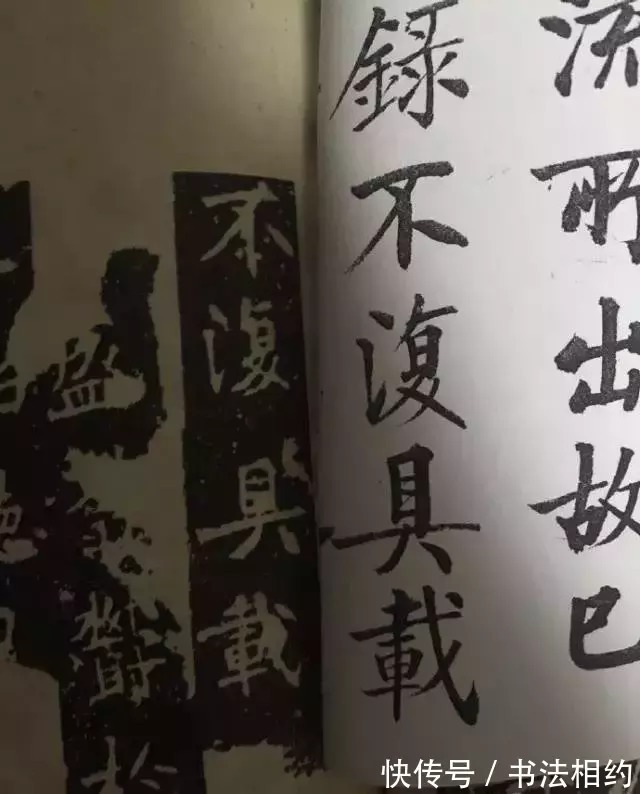 流所出故已
錄不復具載
不復具載
盈
於
快传号 / 书法相约